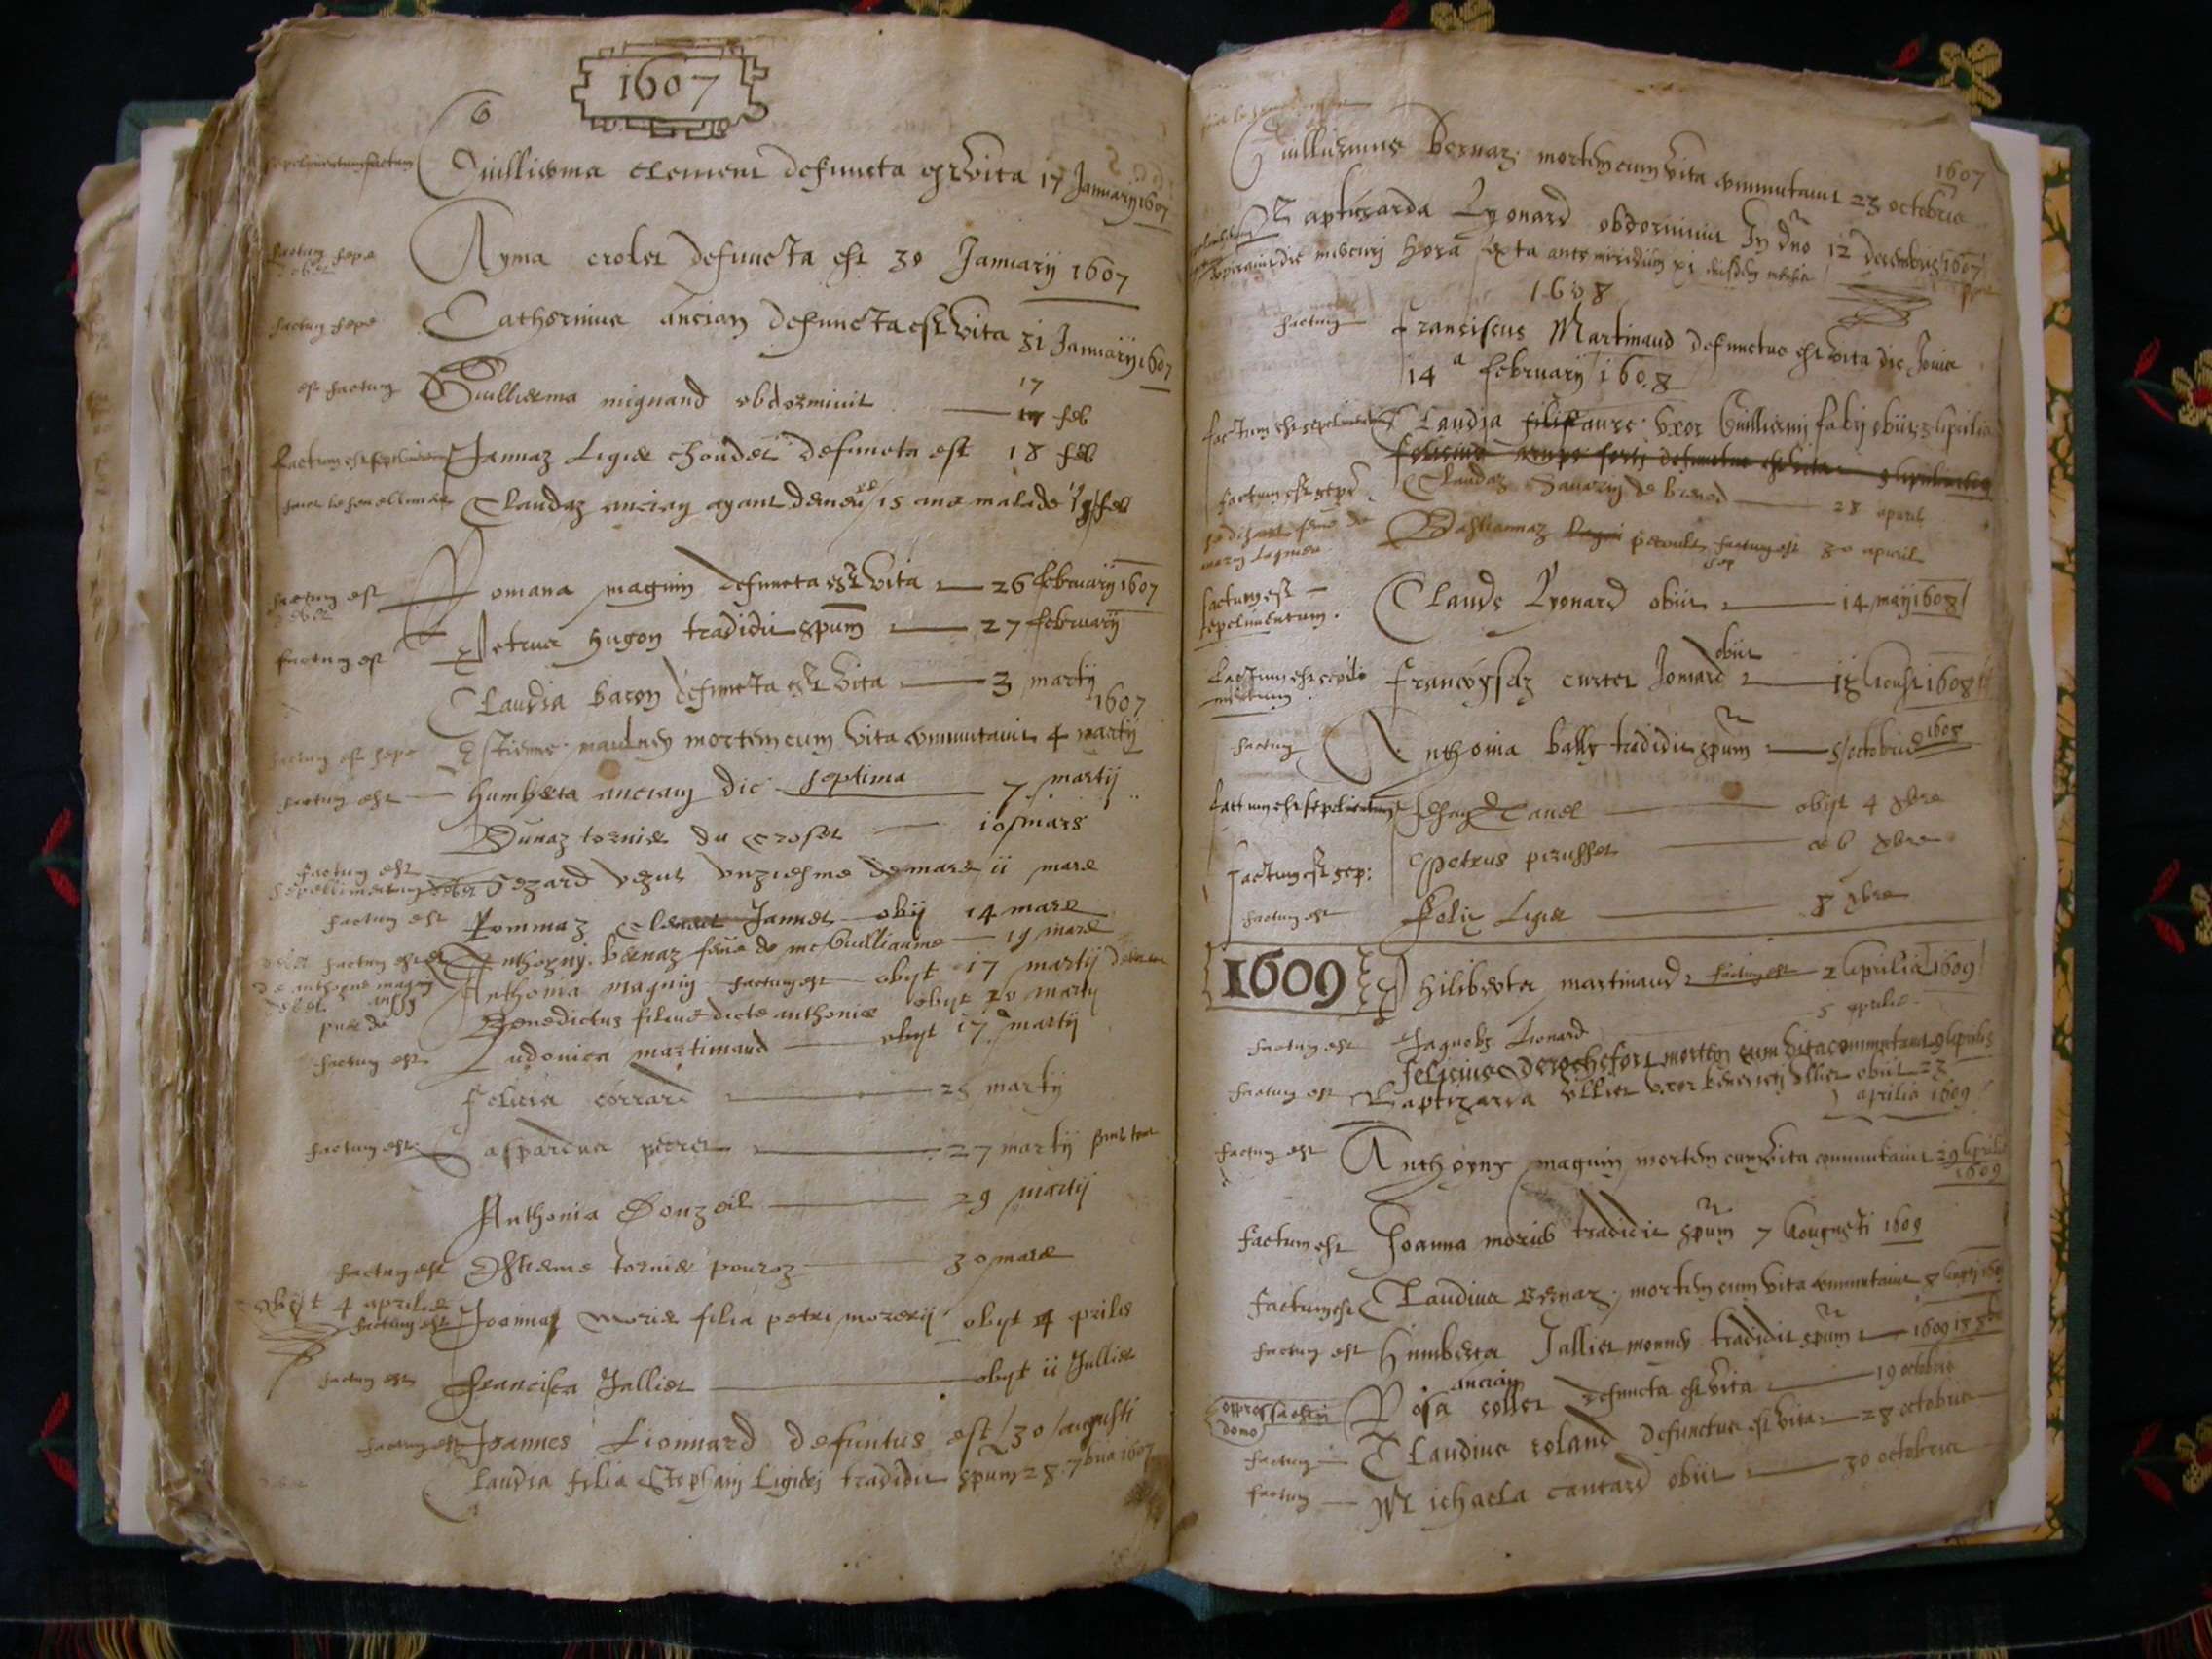 1607
Guillierma Clement defuncta est vita 17 Januarij 1607
Ayma crolet defuncta est 30 Januarij 1607
factum sepe Catherinna ancian defuncta est vita 31 Januarij 1607
est factum Guillierma mignand obdormivit 17 feb
factum est sepelimentum Jannaz Ligier defuncta est 18 feb
Claudaz ancian ayant demeuré 15 ans malade 19 feb
factum est Romana magnin defuncta est vita 26 februarij 1607
factum est Petrus hugon tradidit spum 27 februarij
Claudia bacon defuncta est vita 3 martij 1607
factum est sepe Estienne maulney mortem cum vita commutavit 4 martij
factum est humberta ancian die septima 7 martij
Dunaz tornier du croset 10 mars
factum est
sepellimentum debet Sezard vezut unziesme de mars 11 mars
factum est Pommaz Janner obij 14 mars
factum est Anthoyny bernaz feue de me Guilliaume 19 mars
Anthonia magnin factum est obijt 17 martij
Benedictus filius dicte anthonie obijt 20 martij
factum est Ludovica martinaud obijt 17 martij
felicia corrard 25 martij
factum est Gaspardus perret 27 martij
Anthonia Gonzal 29 martij
factum est Estienne tornier pouroz 30 mars
obijt 4 aprilis
factum est Joannaz morier filia petri morerij obijt 4 aprilis
factum est francisca Jallier obijt 11 Jullier
factum est Joannes Lionnard defuntus est / 30 / augusti
Claudia filia Stephani Ligierj tradidit spum 28 7bris 1607
Guilliermus bernaz mortem cum vita commutavit 23 octobris 1607
Baptizarda Lyonard obdormivit In dno 12 decembris 1607
die mercurij hora sexta ante meridium eiusdem mensis
1608
factum franciscus Martinaud defunctus est vita die Jovis
14a februarij 1608
factum est sepelimentum Claudia faure uxor Guillermj fabrj obiit 3 aprilis
factum est sepe Claudaz Savarin de brenod 28 april
Bastiannaz peroult factum est 30 apvril
factum est
sepelimentum. Claude Lyonard obiit 14 maij 1608
factum est sepeli
mentum francoysaz curtet Joniard obiit 18 Aoust 1608
factum Anthonia bally tradidit spum 5 octobris 1608
factum est sepelimentum Jehan tavel obijt 4 xbre
factum est sep: Petrus perusset 6 xbre
factum est felix Ligier 8 xbre
1609 Philiberta martinaud factum est 2 Aprilis 1609
factum est Jaquobz Lionard 5 aprilis
felicius de rochefort mortem cum vita commutavit 9 Aprilis
factum est Baptizarda ollier uxor benedictj ollier obiit 23
aprilis 1609
factum est Anthoyny magnin mortem cum vita commutavit 29 Aprilis
1609
factum est Joanna morier tradidit spum 7 Augusti 1609
factum est Claudius bernaz mortem cum vita commutavit 8
factum est humberta Jallier monney tradidit spum 1609 18 8bre
ancian
oppressa est in
domo Rosa collet defuncta est vita 19 octobris
factum Claudius roland defunctus est vita 28 octobris
factum Michaela cantard obiit 30 octobris